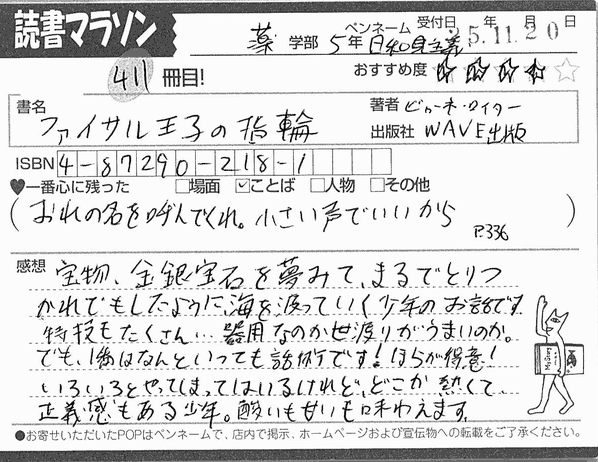 読書マラソン
ペンネーム 受付日 年 月 日
薬 学部 5年 日和見主義 25.11.20
411 冊目! おすすめ度 ☆☆☆☆☆
書名 著者 ビョルネ・ロイター
ファイサル王子の指輪 出版社 WAVE出版
ISBN 4-87290-218-1
♥一番心に残った □場面 ☑ことば □人物 □その他
(おれの名を呼んでくれ。小さい声でいいから P336 )
感想 宝物、金銀宝石を夢みて、まるでとりつ
かれでもしたように、海を渡っていく少年のお話です
特技もたくさん…器用なのか世渡りがうまいのか。
でも、1番はなんといっても話術です!ほらが得意!
いろいろとやってしまってはいるけれど、どこか熱くて
正義感もある少年。酸いも甘いも味わえます
●お寄せいただいたPOPはペンネームで、店内で掲示、ホームページおよび宣伝物への転載をご了承ください。